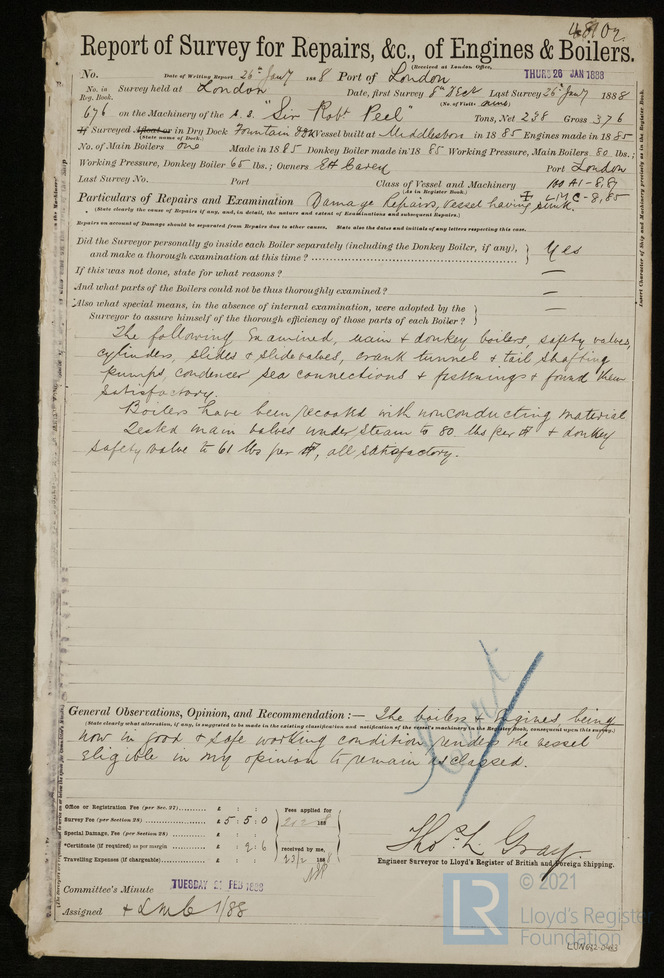 48102.
Report of Survey for Repairs, &c., of Engines & Boilers.
(Received at London Office,
THURS 26 JAN 1888
No. Date of Writing Report 26th Jany 1888 Port of London
No. in Reg. Book. Survey held at London Date, first Survey 8th Dect Last Survey 26th Jany 1888
(No. of Visits nine)
676 on the Machinery of the S. S. "Sir Robt Peel" Tons, Net 288 Gross 376
If Surveyed Afloat or in Dry Dock Fountain Dock Vessel built at Middlesboro in 1885 Engines made in 1885
(State name of Dock.)
No. of Main Boilers one Made in 1885 Donkey Boiler made in 1885 Working Pressure, Main Boilers 80 lbs.;
Working Pressure, Donkey Boiler 65 lbs.; Owners EH Carey Port London
Last Survey No. Port Class of Vessel and Machinery 100 A1 - 8,87
(As in Register Book.) LMC - 8,85
Particulars of Repairs and Examination Damage Repairs, Vessel having sunk.
(State clearly the cause of Repairs if any, and, in detail, the nature and extent of Examinations and subsequent Repairs.)
Repairs on account of Damage should be separated from Repairs due to other causes. State also the dates and initials of any letters respecting this case.
Did the Surveyor personally go inside each Boiler separately (including the Donkey Boiler, if any),
and make a thorough examination at this time? Yes
If this was not done, state for what reasons? —
And what parts of the Boilers could not be thus thoroughly examined? —
Also what special means, in the absence of internal examination, were adopted by the
Surveyor to assure himself of the thorough efficiency of those parts of each Boiler? —
The following Examined, main & donkey boilers, safety valves,
cylinders, slides & slide valves, crank tunnel & tail shafting
pumps, condencer sea connections & fastnings & found them
satisfactory.
Boilers have been recoated with nonconducting material
Tested main valves under steam to 80 lbs per □" & donkey
safety valve to 61 lbs per □", all satisfactory.
General Observations, Opinion, and Recommendation:— The boilers & Engines being
(State clearly what alteration, if any, is suggested to be made in the existing classification and notification of the vessel's machinery in the Register Book, consequent upon this survey.)
now in good & safe working condition renders the vessel
Eligible in my opinion to remain as classed.
Office or Registration Fee (per Sec. 27) £ : :
Fees applied for
Survey Fee (per Section 28) £ 5 : 5 : 0
2/2 1888
Special Damage, Fee (per Section 28) £ : :
*Certificate (if required) as per margin £ : 2 : 6
received by me,
Travelling Expenses (if chargeable) £ : :
23/2 1888
Thos. L Gray.
Engineer Surveyor to Lloyd's Register of British and Foreign Shipping.
Committee's Minute TUESDAY 21 FEB 1888
Assigned + LMC 1/88
LR
© 2021
Lloyd's Register
Foundation
Insert Character of Ship and Machinery precisely as in the Register Book.